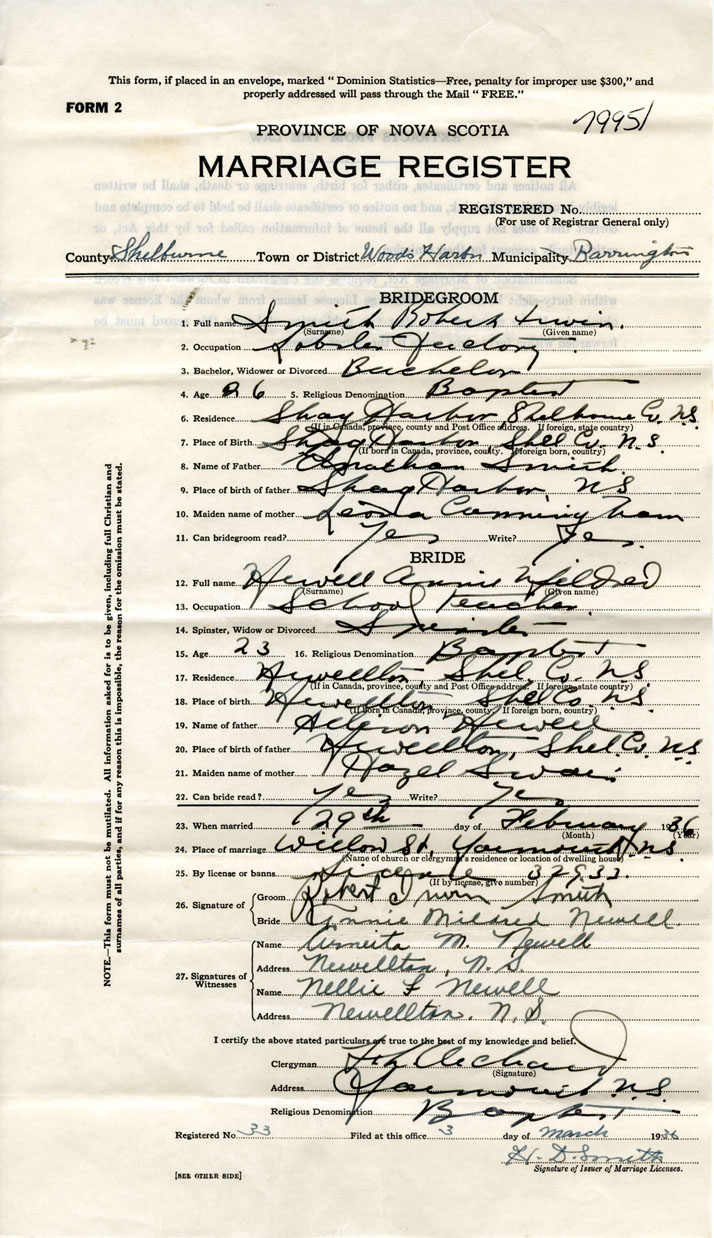 This form, if placed in an envelope, marked “ Dominion Statistics—Free, penalty for improper use $300,” and
properly addressed will pass through the Mail “ FREE.”
FORM 2
79951
PROVINCE OF NOVA SCOTIA
MARRIAGE REGISTER
REGISTERED No.
(For use of Registrar General only)
County Shelburne Town or District Woods Harbor Municipality Barrington
BRIDEGROOM
1. Full name Smith Robert Irwin.
(Surname) (Given name)
2. Occupation Lobster Factory
3. Bachelor, Widower or Divorced Bachelor
4. Age 26 5. Religious Denomination Baptist
6. Residence Shag Harbor Shelburne Co. N.S.
(If in Canada, province, county and Post Office address. If foreign, state country)
7. Place of Birth Shag Harbor Shel Co. N.S.
(If born in Canada, province, county. If foreign born, country)
8. Name of Father Smith
9. Place of birth of father Shag Harbor NS
10. Maiden name of mother Leona Cunningham
11. Can bridegroom read? Yes Write? Yes.
BRIDE
12. Full name Newell Annie Mildred
(Surname) (Given name)
13. Occupation School teacher.
14. Spinster, Widow or Divorced Spinster
15. Age 23 16. Religious Denomination Baptist
17. Residence Newellton, Shel Co. NS
(If in Canada, province, county and Post Office address. If foreign state country)
18. Place of birth Newellton Shel Co. NS
(If born in Canada, province, county. If foreign born, country)
19. Name of father Newell
20. Place of birth of father Newellton, Shel Co. NS
21. Maiden name of mother Hazel Swain
22. Can bride read? Yes Write? Yes
23. When married 29th day of February 1936
(Month) (Year)
24. Place of marriage Willow St, Yarmouth, N.S.
(Name of church or clergyman's residence or location of dwelling house)
25. By license or banns License 32933
(If by license, give number)
26. Signature of
Groom Robert Irwin Smith
Bride Annie Mildred Newell
27. Signatures of Witnesses
Name M. Newell
Address Newellton, N.S.
Name Nellie F Newell
Address Newellton. N.S.
I certify the above stated particulars are true to the best of my knowledge and belief.
Clergyman
(Signature)
Address Yarmouth N.S.
Religious Denomination Baptist
Registered No. 33 Filed at this office 3 day of March 1936
H. D. Smith
Signature of Issuer of Marriage Licenses.
[SEE OTHER SIDE]
NOTE.—This form must not be mutilated. All information asked for is to be given, including full Christian and
surnames of all parties, and if for any reason this is impossible, the reason for the omission must be stated.